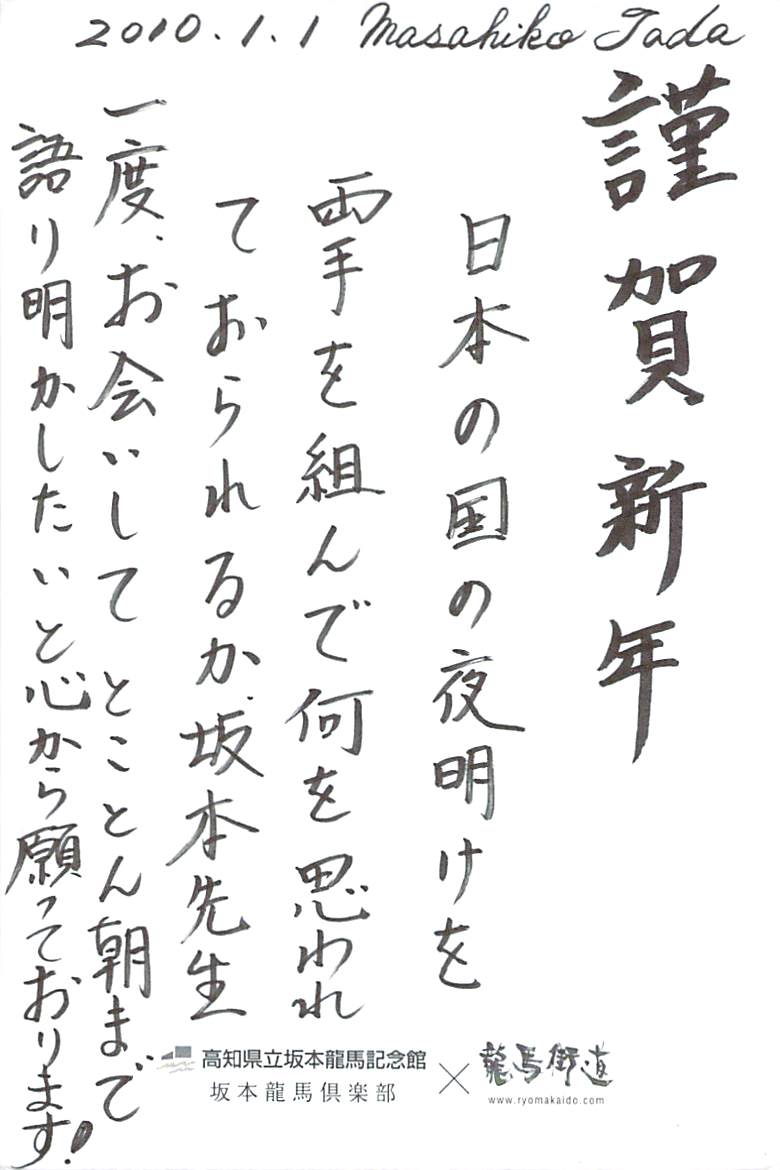 2010.1.1 Masahiko Tada
謹賀新年
日本の国の夜明けを
両手を組んで何を思われ
ておられるか、坂本先生
一度、お会いしてとことん朝まで
語り明かしたいと心から願っております!
高知県立坂本龍馬記念館
坂本龍馬倶楽部
×
龍馬街道
www.ryomakaido.com